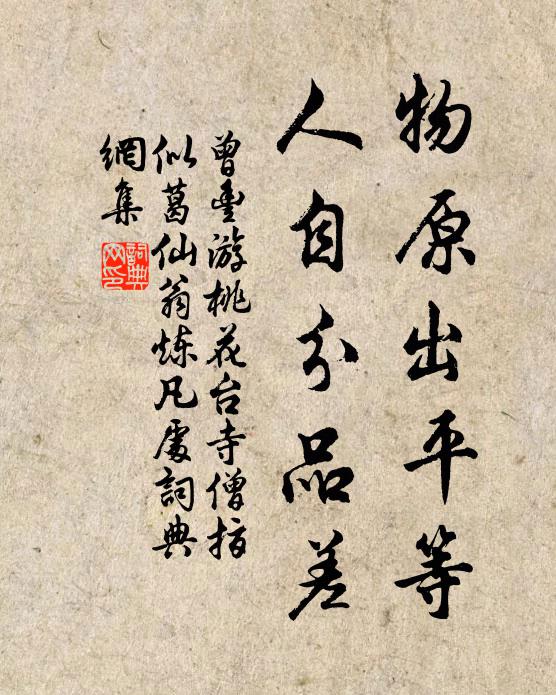 物原出平等
人自分品差
曾豐游桃花台寺僧指
似葛仙翁炼凡處詞典
網集
詞典网印